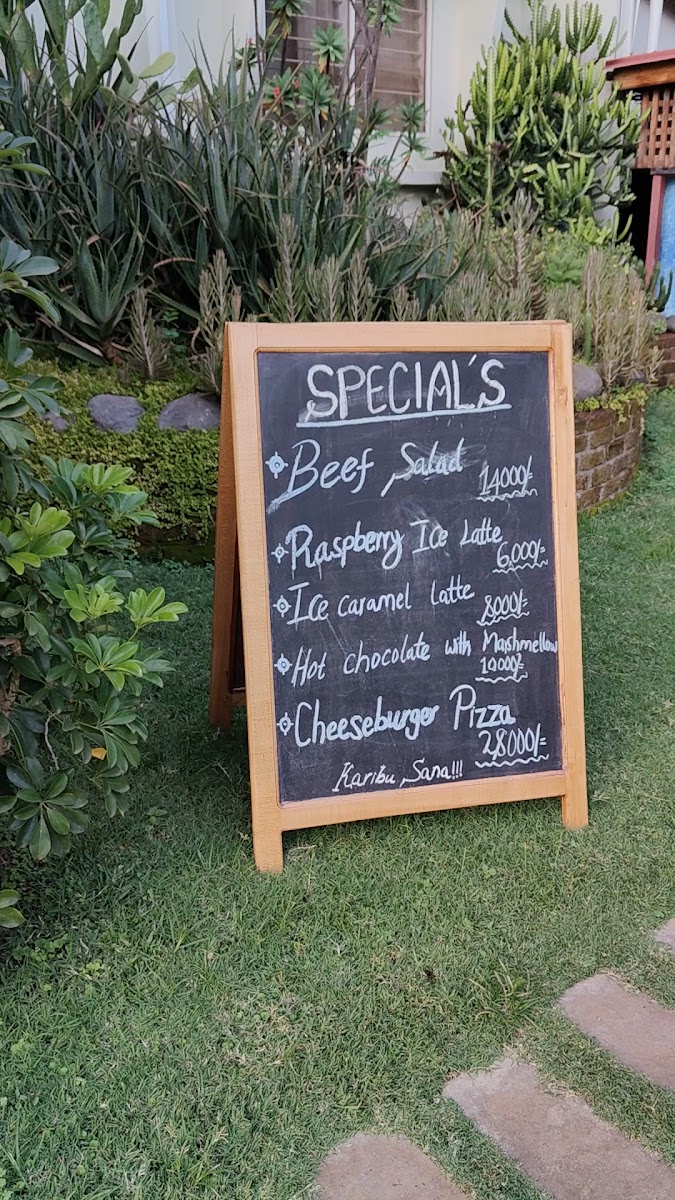 SPECIAL'S
Beef Salad
14000/-
Raspberry Ice Latte
6,000/=
Ice caramel latte
8000/=
Hot chocolate with Marshmellow
10000/=
Cheeseburger Pizza
28000/=
Karibu Sana!!!